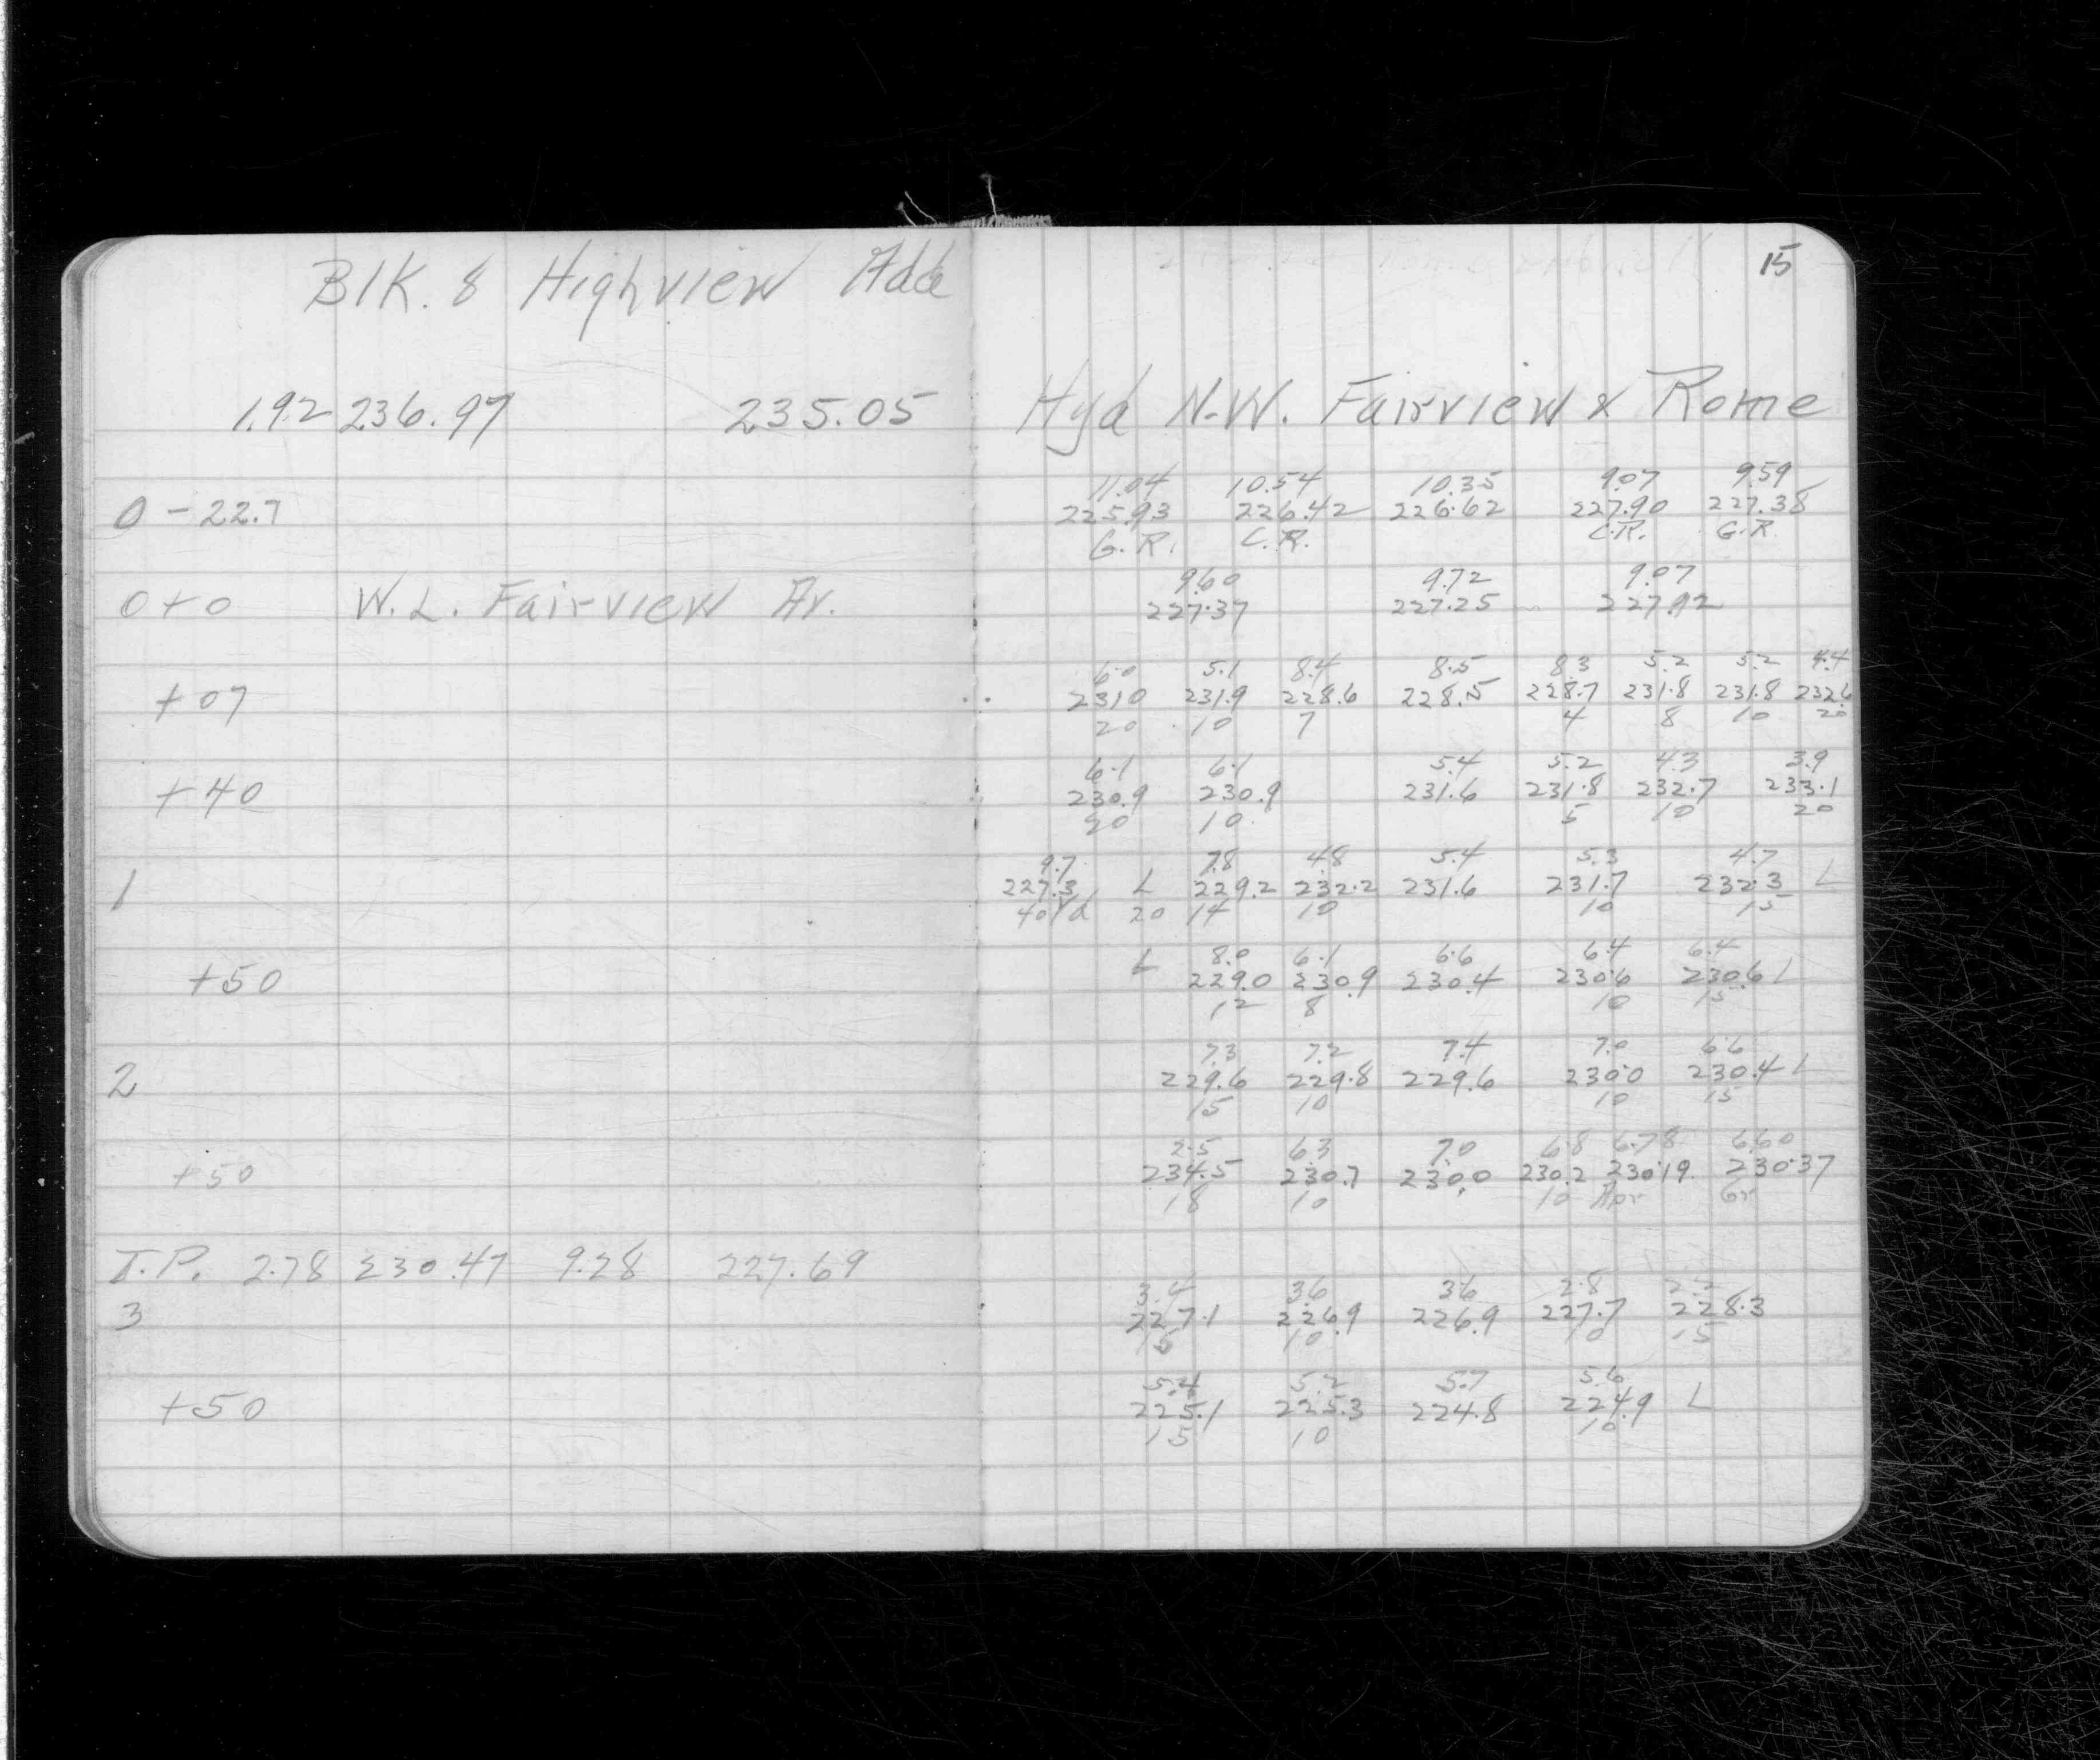 15
Blk. 8 Highview Add
1.92 236.97 235.05 Hyd N.W. Fairview x Rome
11.04 10.54 10.35 9.07 9.59
0 - 22.7 225.93 226.42 226.62 227.90 227.38
G.R. C.R. C.R. G.R.
9.60 9.72 9.07
0+0 W.L. Fairview Av. 227.37 227.25 227.92
6.0 5.1 8.4 8.5 8.3 5.2 5.2 4.4
+07 231.0 231.9 228.6 228.5 228.7 231.8 231.8 232.6
20 10 7 4 8 10 20
6.1 6.1 5.4 5.2 4.3 3.9
+40 230.9 230.9 231.6 231.8 232.7 233.1
20 10 5 10 20
9.7 7.8 4.8 5.4 5.3 4.7
1 227.3 L 229.2 232.2 231.6 231.7 232.3 L
40 Yd 20 14 10 10 15
8.0 6.1 6.6 6.4 6.4
+50 L 229.0 230.9 230.4 230.6 230.6 L
12 8 10 15
7.3 7.2 7.4 7.0 6.6
2 229.6 229.8 229.6 230.0 230.4 L
15 10 10 15
2.5 6.3 7.0 6.8 6.78 6.60
+50 234.5 230.7 230.0 230.2 230.19 230.37
18 10 10 Apr Gr
T.P. 2.78 230.47 9.28 227.69
3.4 3.6 3.6 2.8 2.2
3 227.1 226.9 226.9 227.7 228.3
15 10 10 15
5.4 5.2 5.7 5.6
+50 225.1 225.3 224.8 224.9 L
15 10 10